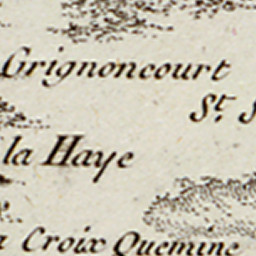 Grignoncourt
St. S
la Haye
a Croix Quemine